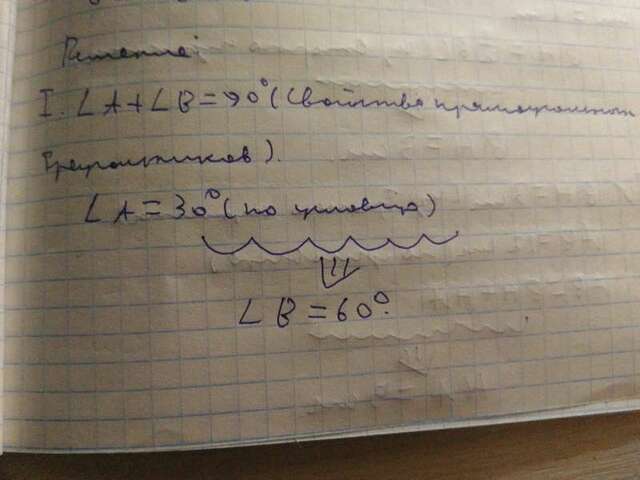 Решение:
I. ∠A+∠B=90° (Свойства прямоугольных
треугольников).
∠A=30° (по условию)
∠B=60°.